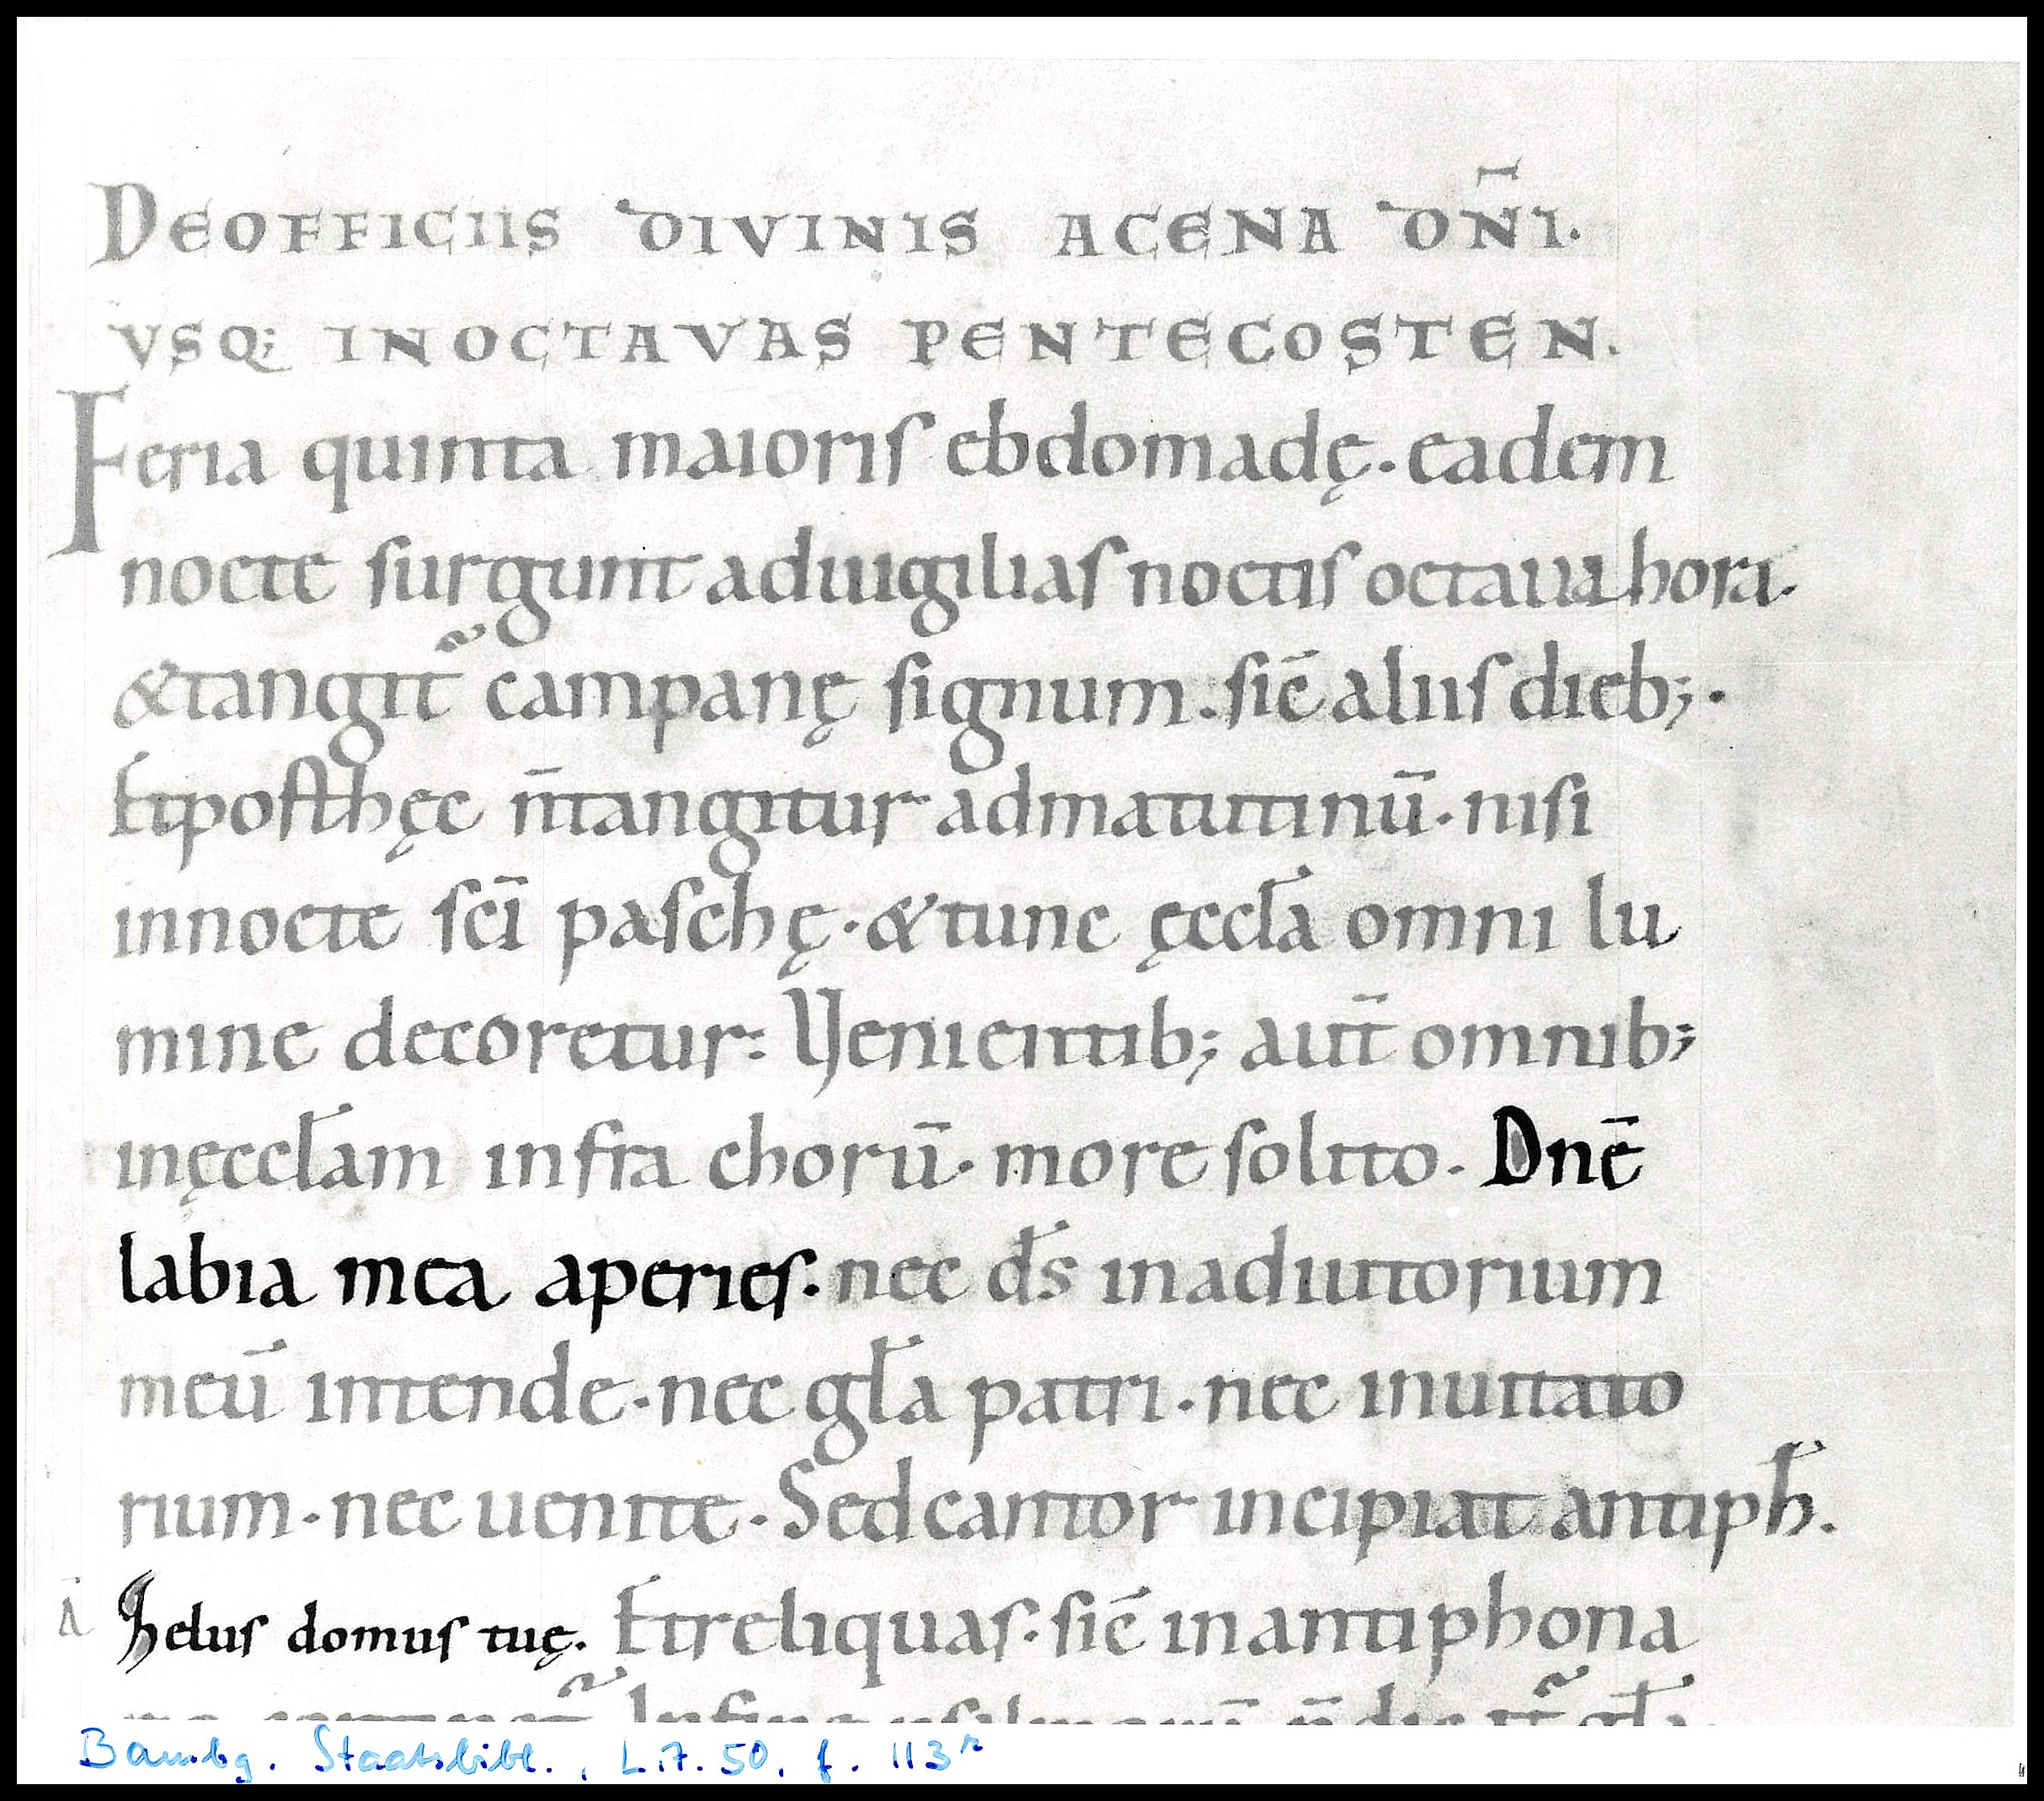 DEOFFICIIS DIVINIS ACENA DN̄I.
VSQ; INOCTAVAS PENTECOSTEN.
Feria quinta maioris ebdomadę. eadem
nocte surgunt aduigilias noctis octaua hora.
&tangit᷑ campanę signum. sic̄ aliis dieb;.
Etposthęc n̄tangitur admatutinū. nisi
innocte scī paschę. &tunc ęccła omni lu
mine decoretur: Uenientib; aut̄ omnib;
inęccłam infra chorū. more solito. Dnē
labia mea aperies. nec ds̄ inadiutorium
meū intende. nec gła patri. nec inuitato
rium. nec uenite. Sed cantor incipiat antiph̄.
ā Zelus domus tuę. Etreliquas. sic̄ inantiphona
Bambg. Staatsbibl., Lit. 50, f. 113r